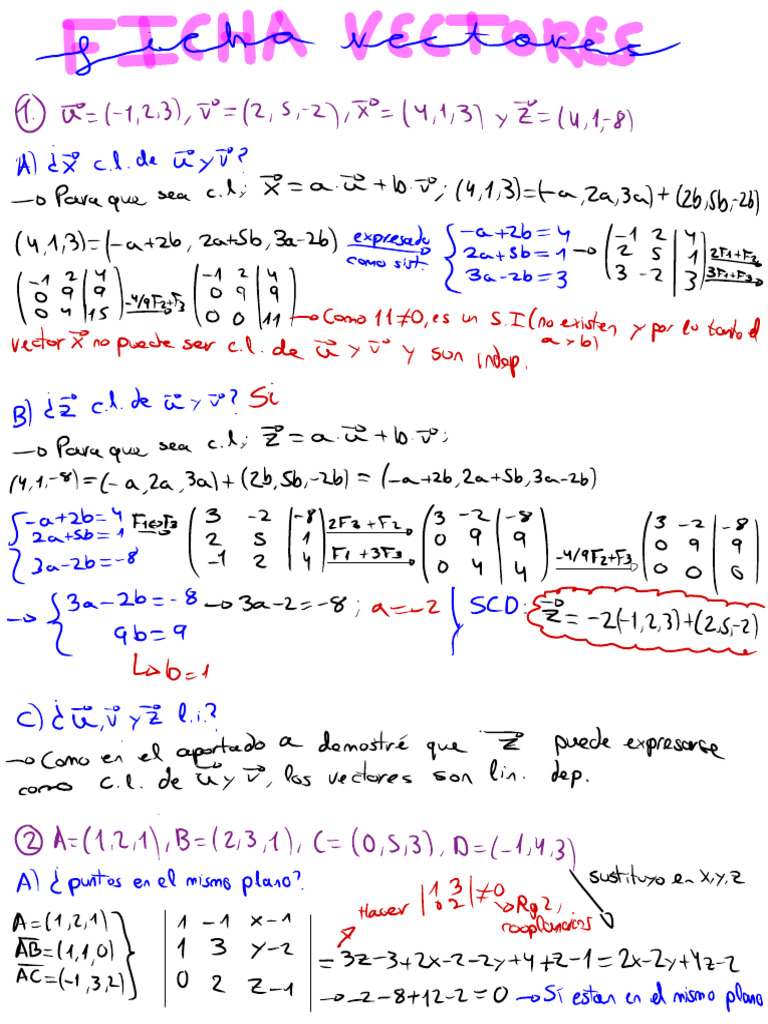 FICHA VECTORES
ficha vectores
① u⃗=(-1,2,3), v⃗=(2,5,-2), x⃗=(4,1,3) y z⃗=(4,1,-8)
A) ¿x⃗ c.l. de u⃗ y v⃗?
→ Para que sea c.l; x⃗=a·u⃗+b·v⃗; (4,1,3)=(-a,2a,3a)+(2b,5b,-2b)
(4,1,3)=(-a+2b, 2a+5b, 3a-2b) expresado como sist. → { -a+2b=4 2a+5b=1 3a-2b=3 → (-1 2 | 4 2 5 | 1 3 -2 | 3) 2F1+F2 3F1+F3 →
(-1 2 | 4 0 9 | 9 0 4 | 15) -4/9F2+F3 → (-1 2 | 4 0 9 | 9 0 0 | 11) → Como 11≠0, es un S.I (no existen a y b) y por lo tanto el
vector x⃗ no puede ser c.l. de u⃗ y v⃗ y son indep.
B) ¿z⃗ c.l. de u⃗ y v⃗? Si
→ Para que sea c.l; z⃗=a·u⃗+b·v⃗;
(4,1,-8)=(-a,2a,3a)+(2b,5b,-2b)=(-a+2b,2a+5b,3a-2b)
{ -a+2b=4 2a+5b=1 3a-2b=-8 F1↔F3 → (3 -2 | -8 2 5 | 1 -1 2 | 4) 2F3+F2 F1+3F3 → (3 -2 | -8 0 9 | 9 0 4 | 4) -4/9F2+F3 → (3 -2 | -8 0 9 | 9 0 0 | 0)
→ { 3a-2b=-8 → 3a-2=-8; a=-2 SCD: z⃗=-2(-1,2,3)+(2,5,-2)
9b=9
↳ b=1
C) ¿u⃗, v⃗ y z⃗ l.i.?
→ Como en el apartado a demostré que z⃗ puede expresarse
como c.l. de u⃗ y v⃗, los vectores son lin. dep.
② A=(1,2,1), B=(2,3,1), C=(0,5,3), D=(-1,4,3)
A) ¿puntos en el mismo plano? sustituyo en x,y,z
Hacer |1 3 0 2| ≠0 → Rg2, coplanarios
A=(1,2,1) AB=(1,1,0) AC=(-1,3,2) } |1 -1 x-1 1 3 y-2 0 2 z-1| = 3z-3+2x-2-2y+4+z-1=2x-2y+4z-2
→ -2-8+12-2=0 → Sí estan en el mismo plano